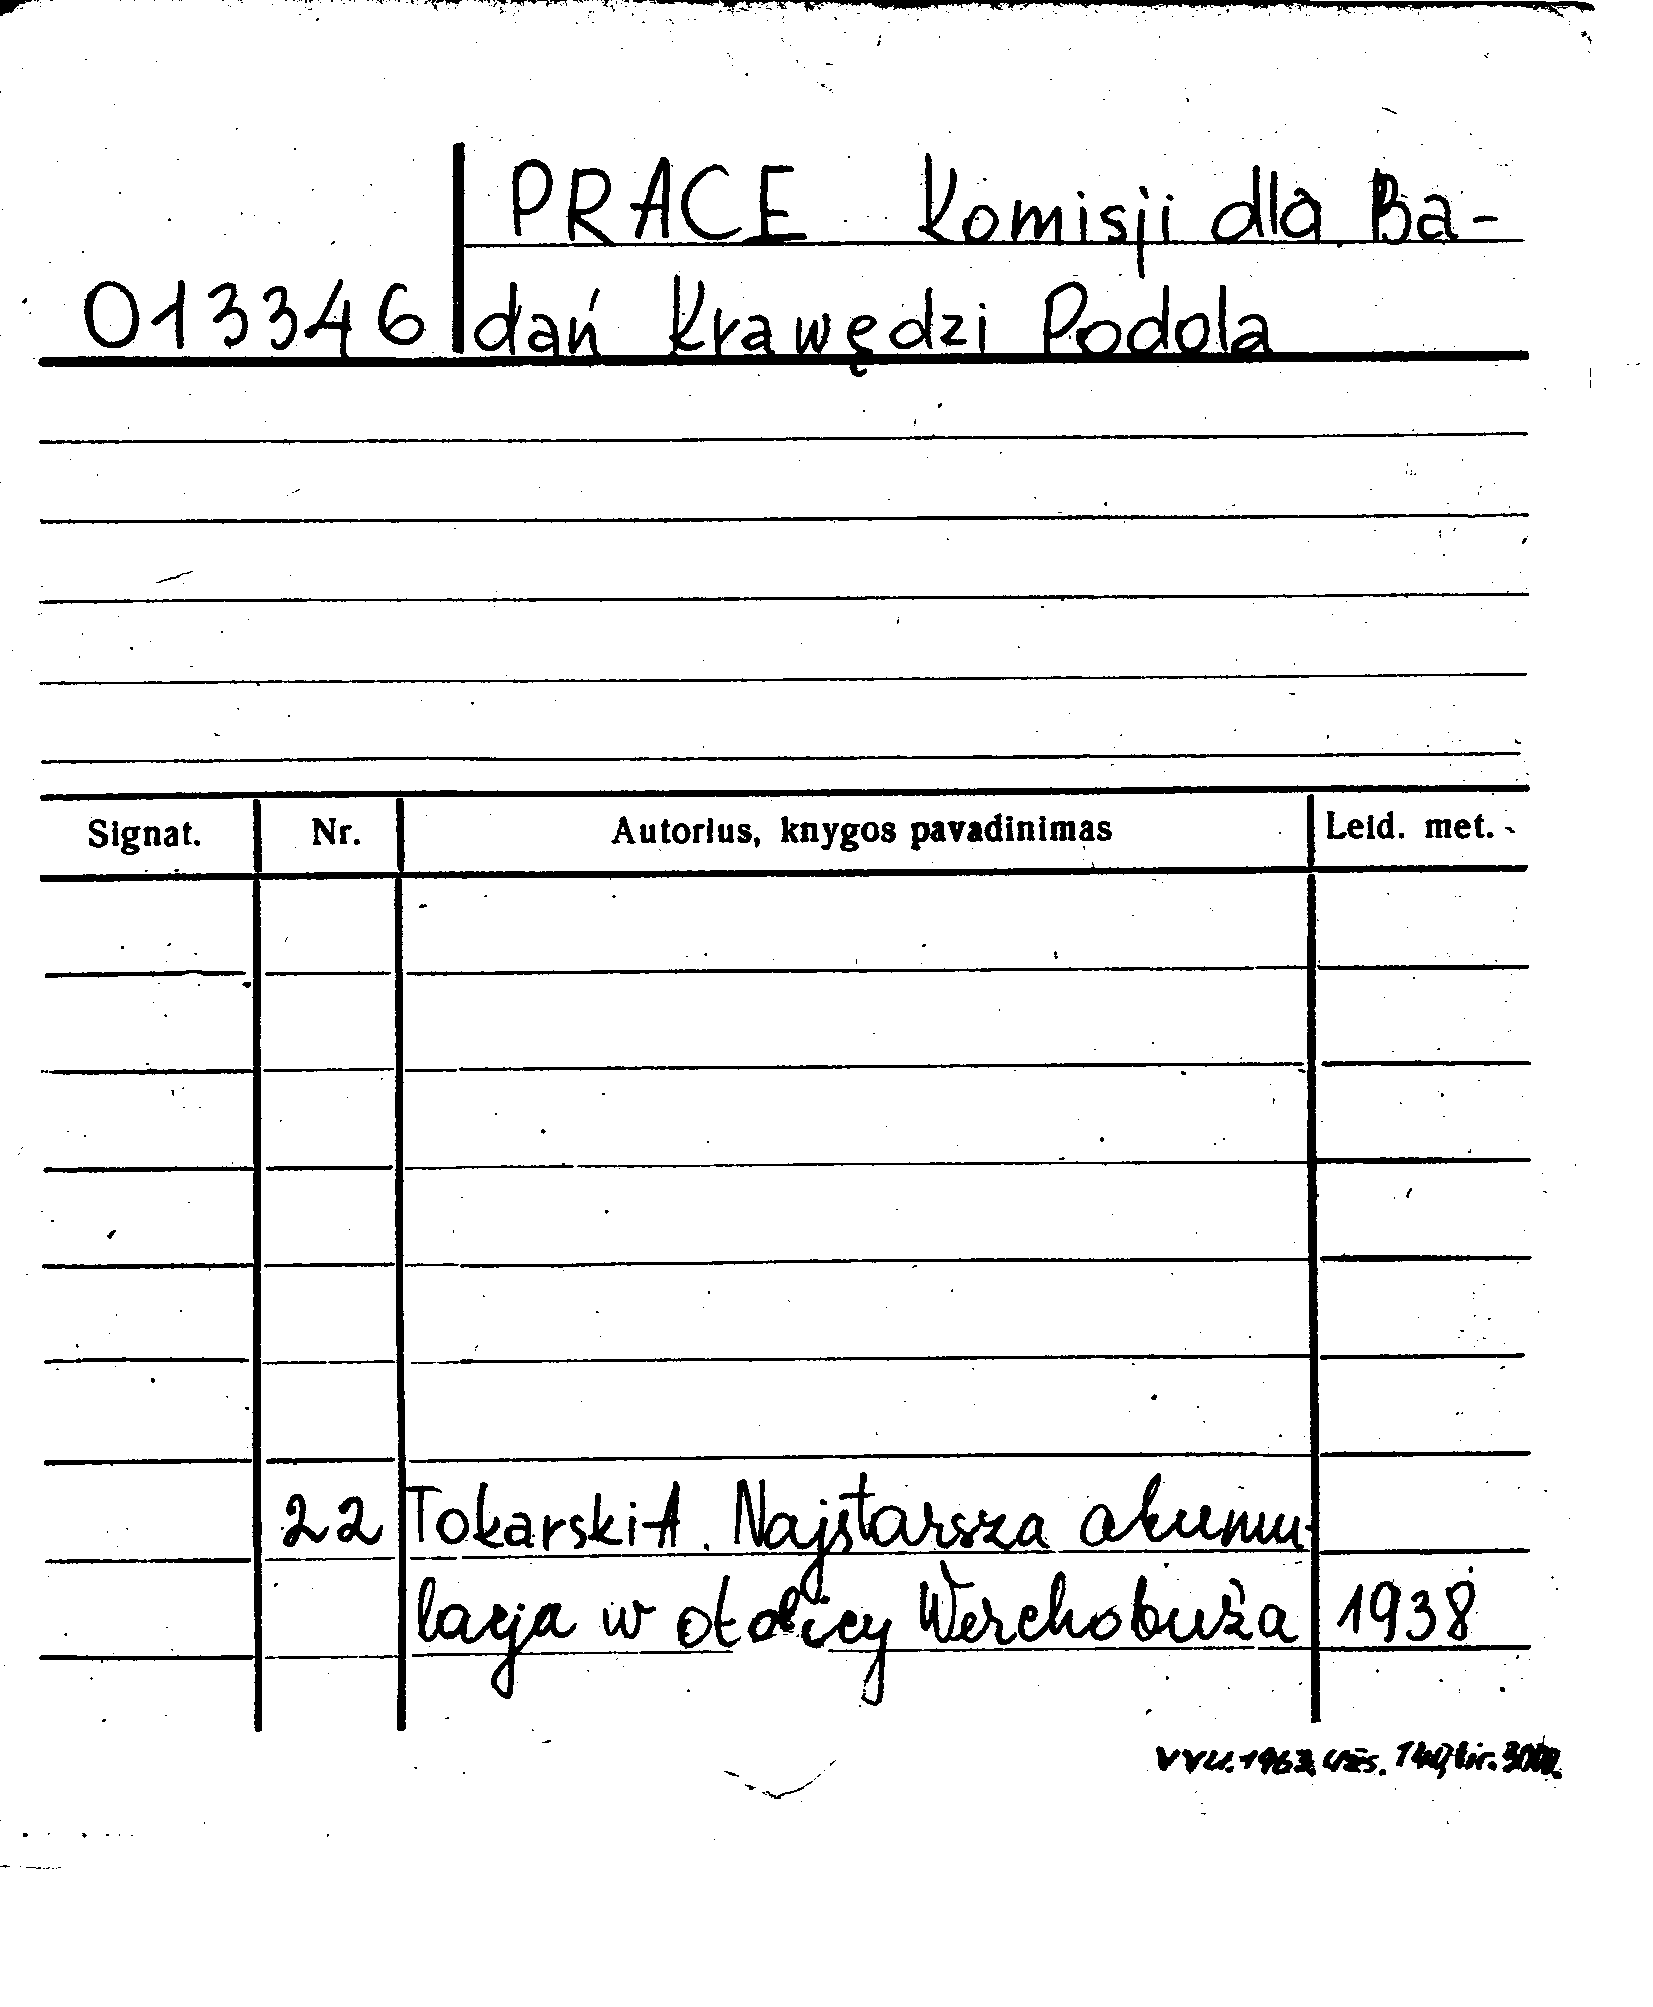 PRACE Komisji dla Ba-
013346 dań Krawędzi Podola
Signat. Nr. Autorius, knygos pavadinimas Leid. met.
22 Tokarski A. Najstarsza akumu-
lacja w okolicy Werchobuża 1938
VVU. 1963. Užs. 140, tir. 3000.